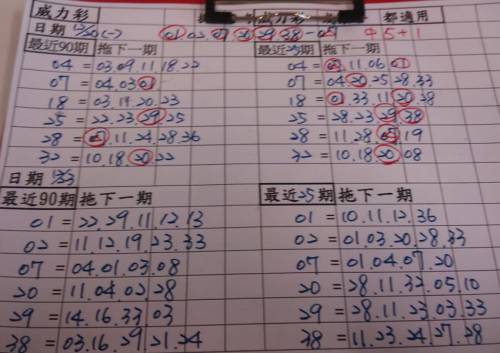 威力彩 威力彩 都適用
日期 12/20(一) 01 02 07 20 29 38-05 中5+1
最近90期 拖下一期 最近25期 拖下一期
04=03.09.11.18.22 04=05.11.06.01
07=04.03.01 07=04.20.25.28.33
18=03.19.20.23 18=01.33.11.20.38
25=22.23.29.25 25=28.23.29.38
28=05.11.24.28.36 28=11.28.05.19
32=10.18.20.22 32=10.18.20.08
日期 12/23
最近90期 拖下一期 最近25期 拖下一期
01=22.29.11.12.13 01=10.11.12.36
02=11.12.19.23.33 02=01.03.20.28.33
07=04.01.03.08 07=01.04.07.20
20=11.04.02.28 20=28.11.33.05.10
29=14.16.33.03 29=28.11.23.03.33
38=03.16.29.21.24 38=11.23.24.27.28